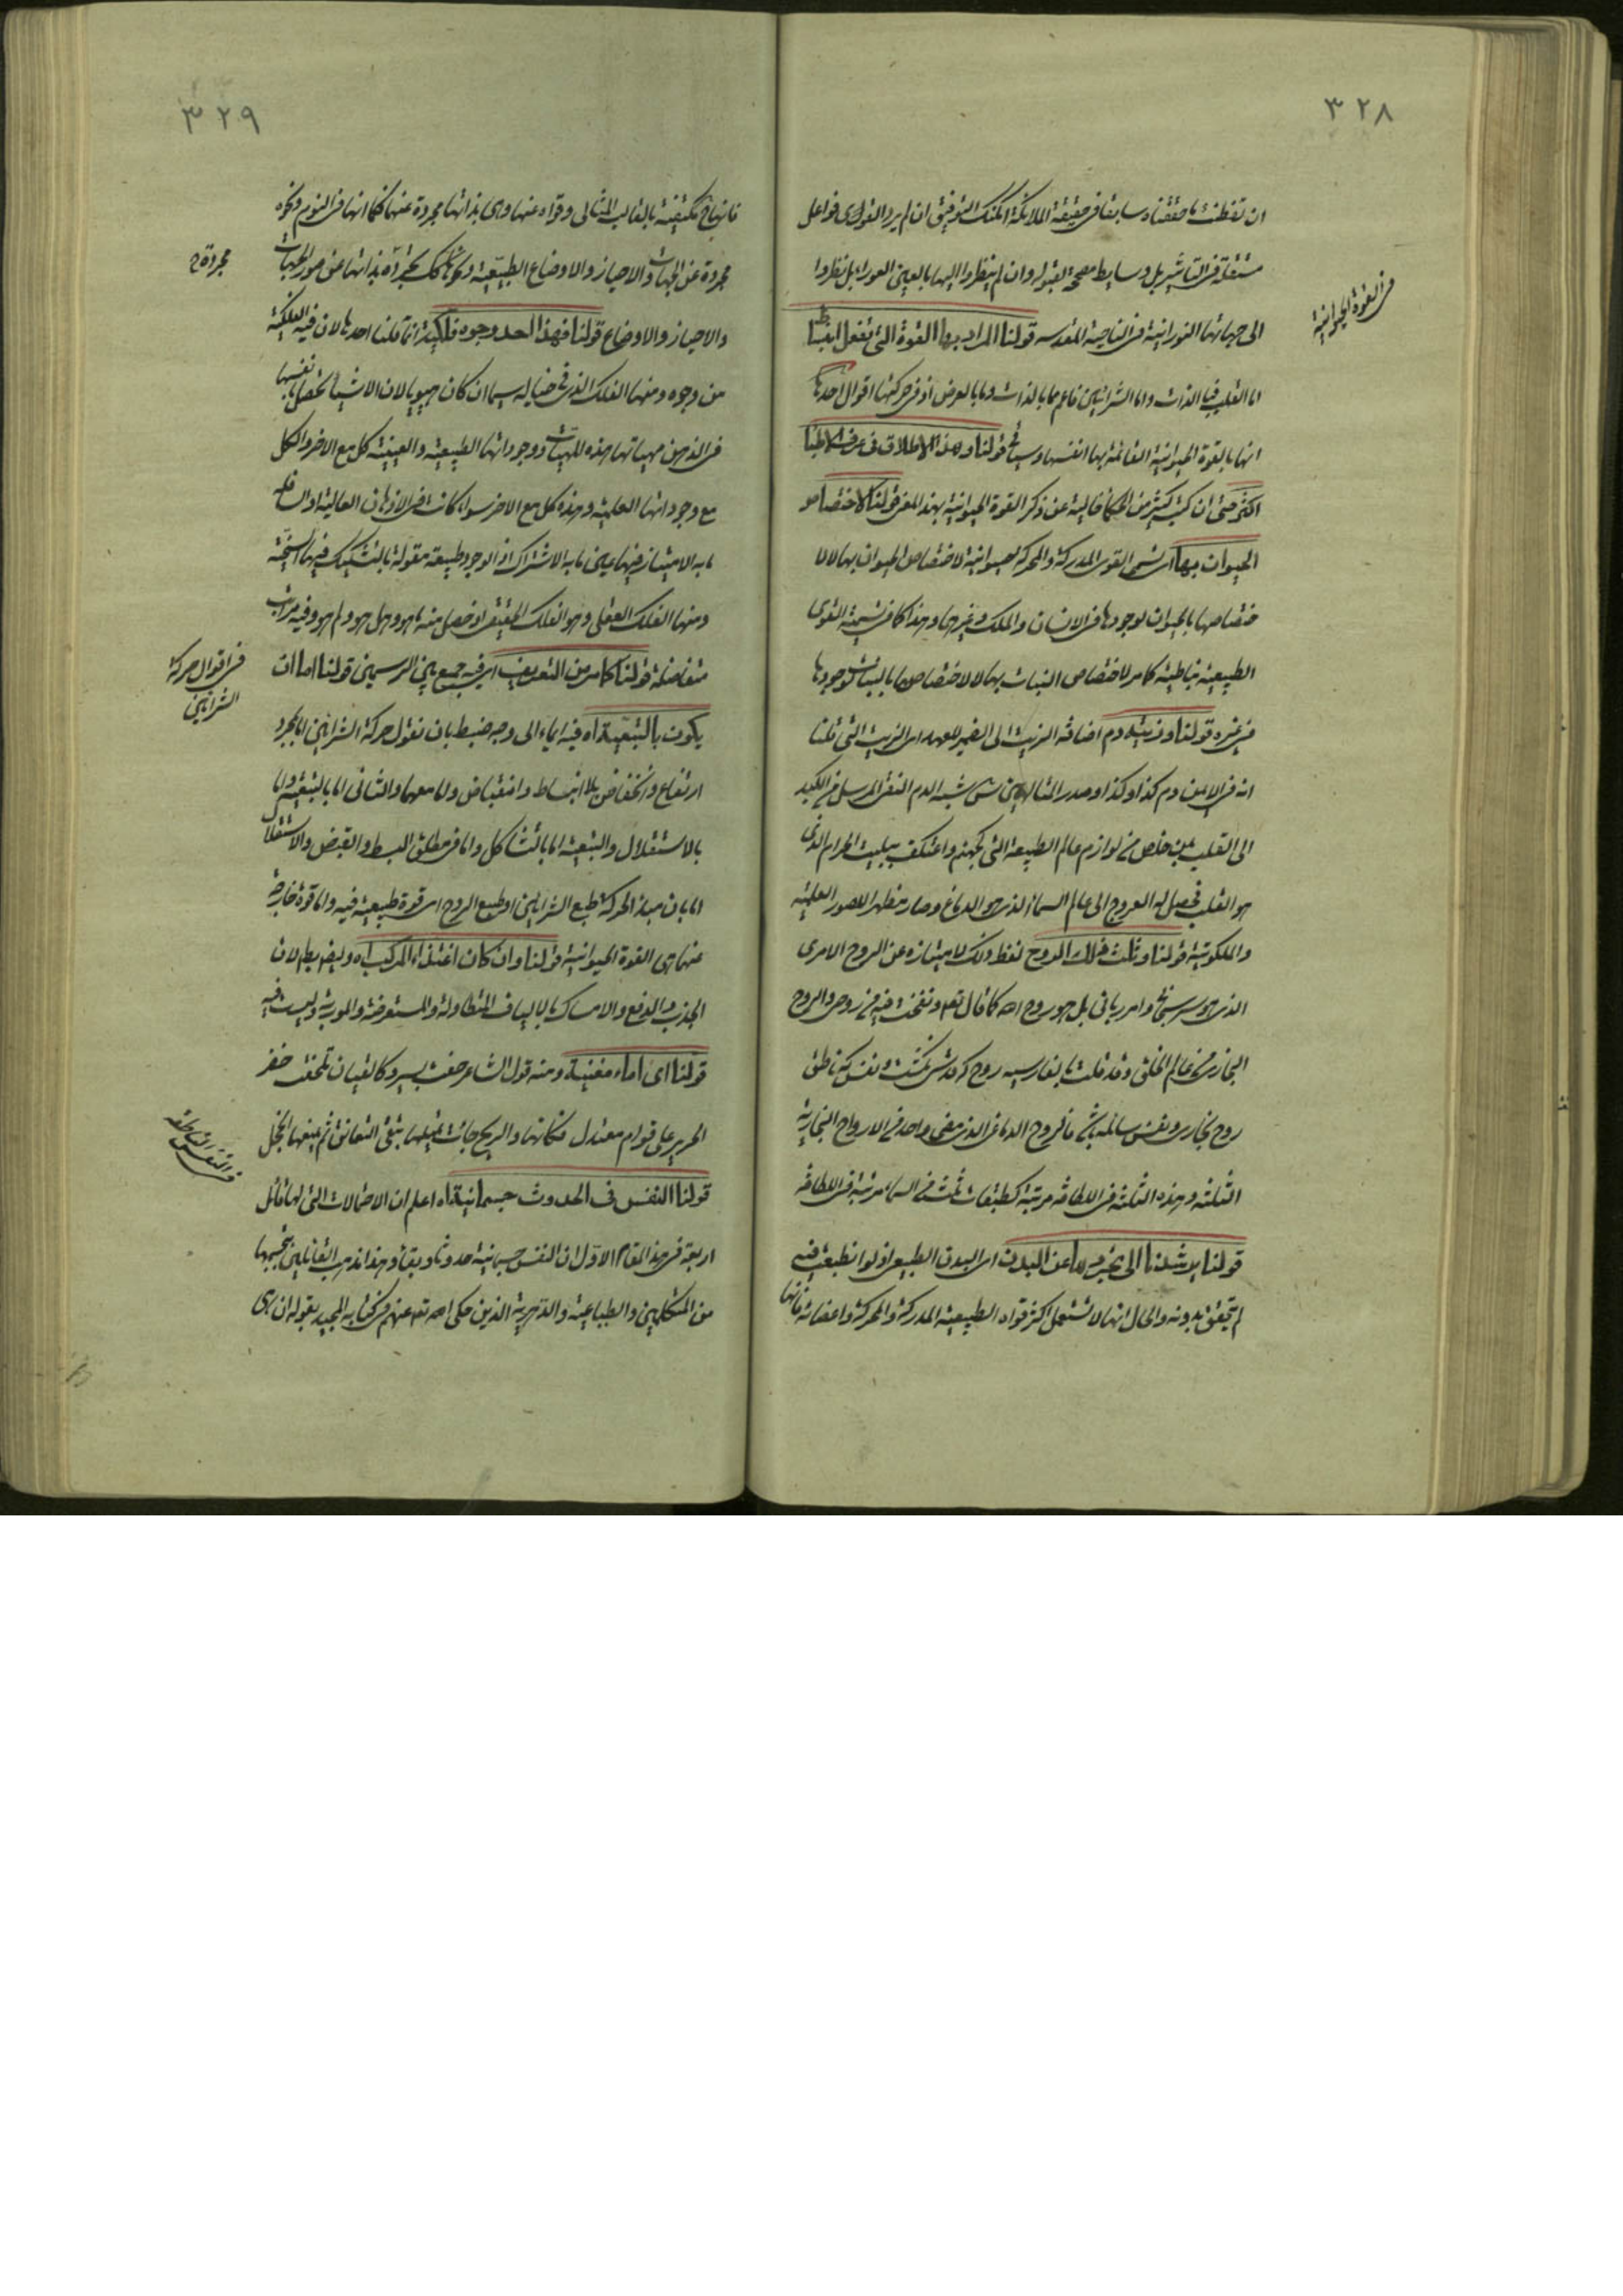 ٣٢٨
ان تفطنت بما حققناه سابقا فى حقيقة الملائكة امكنك التوفيق ان لم يرد القول فواعل
مستقلة فى التأثير بل وسايط مصححة لقبوله وان لم ينظروا اليها بالعين العوراء بل نظروا
الى جهاتها النورانية فى الناحية المقدسه قولنا المراد بها القوة التى تفعل انبساط
فى القوة الحيوانية
اما القلب فبالذات واما الشرائين فاعم مما بالذات ومما بالعرض اذ فى حركتها اقوال احدها
انها بالقوة الحيوانية القائمة بها انفسها وسيأتى قولنا وهذا الاطلاق فى عرف الاطباء
اكثر حتى ان كتب كثير من الحكماء خالية عن ذكر القوة الحيوانية بهذا المعنى قولنا لاختصاص
الحيوان بها اى تسمى القوى المدركة والمحركة حيوانية لاختصاص الحيوان بها لا لا
ختصاصها بالحيوان لوجودها فى الانسان والملك وغيرها وهذا كما فى تسمية القوى
الطبيعية نباتية كما مر لاختصاص النبات بها لا لاختصاصها بالنبات لوجودها
فى غيره قولنا وزيته دم اضافة الزيت الى الضمير للعهد اى الزيت التى قلنا
انه فى الامن دم كذا وكذا وصدر المتالهين س شبه الدم النقى المرسل من الكبد
الى القلب بمن خلص من لوازم عالم الطبيعة التى كجهنم واعتكف ببيت الحرام الذى
هو القلب فحصل له العروج الى عالم السماء الذى هو الدماغ وصار مظهرا للصور العلمية
والملكوتية قولنا وثلث فذلك الروح لفظ ذلك لامتيازه عن الروح الامرى
الذى هو سر سبحانى وامر ربانى بل هو روح الله كما قال تعه ونفخت فيه من روحى والروح
البخارى من عالم الخلق وقد قلت بالفارسيه روح كه قدسى نگشت ونفس كه ناطق
روح بخارى ونفس سائمه باشى فالروح الدماغى الذى مضى واحد من الارواح البخارية
الثلثة وهذه الثلثة فى اللطافة مرتبة كطبقات ثلث من السماء مرتبة فى اللطافة
قولنا يرشدنا الى تجردها عن البدن اى البدن الطبيعى اذ لو انطبعت فيه
لم تتحقق بدونه والحال انها لا تستعمل اكثر قواه الطبيعية المدركة والمحركة واعضائه فانها
٣٢٩
مكتفية بالقالب المثالى وقواه عنها وهى بذاتها مجردة عنها كما انها فى النوم ونحوه
مجردة عن الجهات والاحياز والاوضاع الطبيعية كك بذاتها عن صور الجهات
مجردة خ
والاحياز والاوضاع قولنا فهذا الحد وجوه فلكية انما قلنا احدها لان فيه الفلكية
من وجوه ومنها الفلك الذى فى خياله سيما ان كان هيويا لان الاشياء تحصل بانفسها
فى الذهن مهياتها هذه المهيات ووجوداتها الطبيعية والعينية كل مع الاخر والكل
مع وجوداتها العلمية وهذه كل مع الاخر سواء كانت فى الاذهان العالية او السافلة
ما به الامتياز فيها عين ما به الاشتراك اذ الوجود طبيعة مقولة بالتشكيك فيها السنخية
ومنها الفلك العقلى وهو الفلك الحقيقى اذ حصل منه ما هو وهل هو ولم هو وفيه مراتب
متفاضلة قولنا كما مر من التعريف اى فيه جمع بين الرسمين قولنا اما ان
فى اقوال حركة الشرائين
يكون بالتبعية اه فيه ايماء الى وجه ضبط بان نقول حركة الشرائين اما بمجرد
ارتفاع وانخفاض بلا انبساط وانقباض واما معهما والثانى اما بالتبعية واما
بالاستقلال والتبعية اما بالتشاكل واما فى مطلق البسط والقبض والاستقلال
اما بان مبدء الحركة طبع الشرائين او طبع الروح اى قوة طبيعية فيه واما قوة خارجة
عنهما هى القوة الحيوانية قولنا وان كان اغتذاء المركب اه وليفه بطلان
الجذب والدفع والامساك بالالياف المتطاولة والمستعرضة والموربة وليست فيه
قولنا اى اماء مغنية ومنه قول الشاعر حفت بسرو كالقيان تلحفت خضر
الحرير على قوام معتدل فكانها والريح جاءت تميلها تبغى التعانق ثم يمنعها الخجل
قولنا النفس فى الحدوث جسمانية اه اعلم ان الاحتمالات التى لها قائل
فى النفس الناطقه
اربعة فى هذا المقام الاول ان النفس جسمانية حدوثا وبقاء وهذا مذهب القائلين بتجسمها
من المتكلمين والطباعية والدهرية الذين حكى الله تعه عنهم فى كتابه المجيد بقوله ان هى